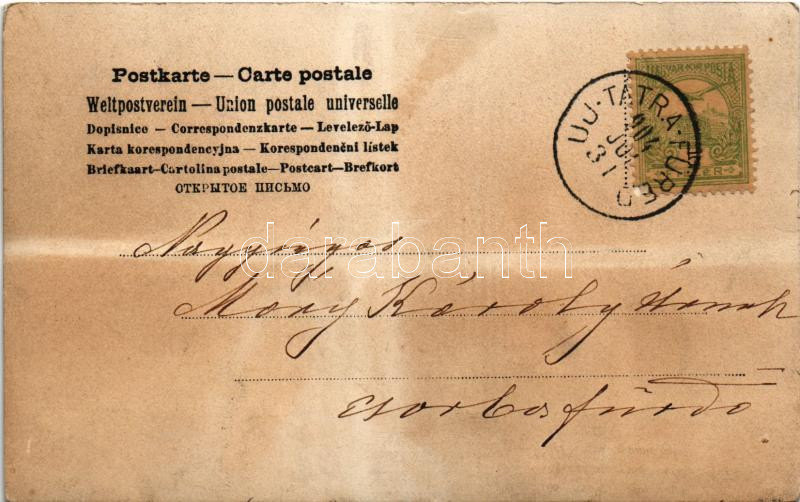 Postkarte — Carte postale
Weltpostverein — Union postale universelle
Dopisnice — Correspondenzkarte — Levelező-Lap
Karta korespondencyjna — Korespondenční lístek
Briefkaart — Cartolina postale — Postcart — Brefkort
ОТКРЫТОЕ ПИСЬМО
MAGYAR KIR. POSTA
UJ-TÁTRA-FÜRED
904
JUL
31
Nagyságos
Móry Károly Úrnak
Csorbafürdő
darabanth